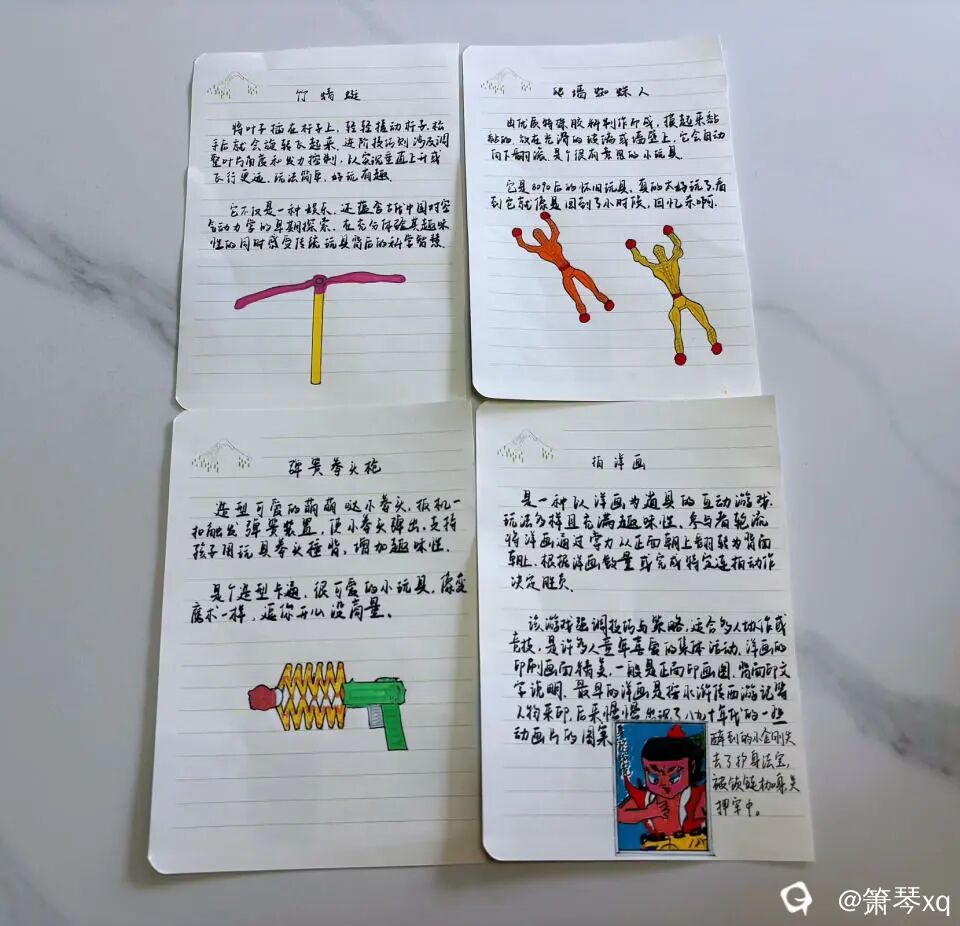 竹蜻蜓
将叶子插在杆子上，轻轻搓动杆子，松
手后就会旋转飞起来，进阶技巧则涉及调
整叶片角度和发力控制，以实现垂直上升或
飞行更远，玩法简单，好玩有趣。
它不仅是一种娱乐，还蕴含古代中国对空
气动力学的早期探索，在充分体验其趣味
性的同时感受传统玩具背后的科学智慧。
爬墙蜘蛛人
由优质特殊胶料制作印成，摸起来黏
黏的，放在光滑的玻璃或墙壁上，它会自动
向下翻滚，是个很有意思的小玩具。
它是8090后的怀旧玩具，真的太好玩了，看
到它就像是回到了小时候，回忆杀啊。
弹簧拳头枪
造型可爱的萌萌哒小拳头，扳机一
扣触发弹簧装置，使小拳头弹出，支持
孩子用玩具拳头捶背，增加趣味性。
是个造型卡通，很可爱的小玩具，像变
魔术一样，逗你开心没商量。
拍洋画
是一种以洋画为道具的互动游戏，
玩法多样且充满趣味性，参与者轮流
将洋画通过掌力从正面朝上翻转为背面
朝上，根据洋画数量或完成特定连拍动作
决定胜负。
该游戏强调技巧与策略，适合多人协作或
竞技，是许多人童年喜爱的集体活动，洋画的
印刷画面精美，一般是正面印画图，背面印文
字说明，最早的洋画是按水浒传西游记等
人物来印，后来慢慢出现了八九十年代的一些
动画片的图案
醉到的小金刚失
去了护身法宝，
被锁链枷
押牢中。
@箫琴xq